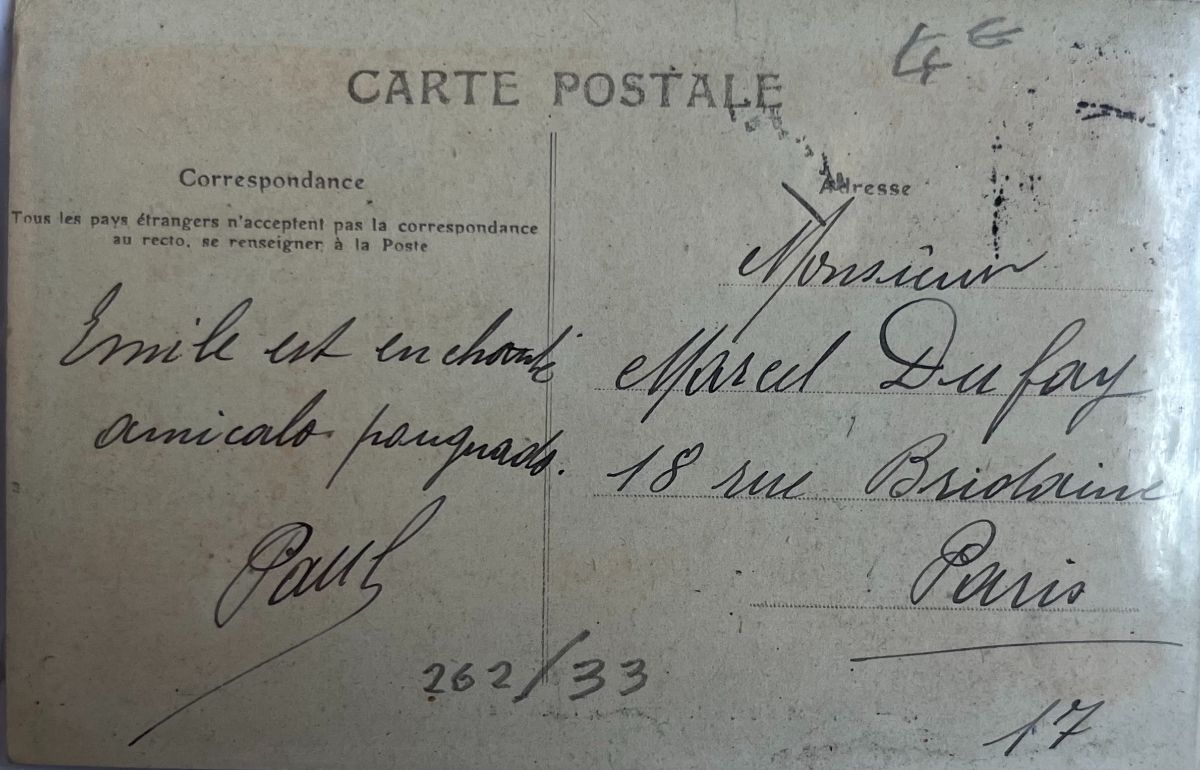 4€
CARTE POSTALE
Correspondance
Tous les pays étrangers n'acceptent pas la correspondance
au recto, se renseigner à la Poste
Emile est enchanté
amicale
Paul
Adresse
Monsieur
Marcel Dufay
18 rue Bridaine
Paris
17
262/33